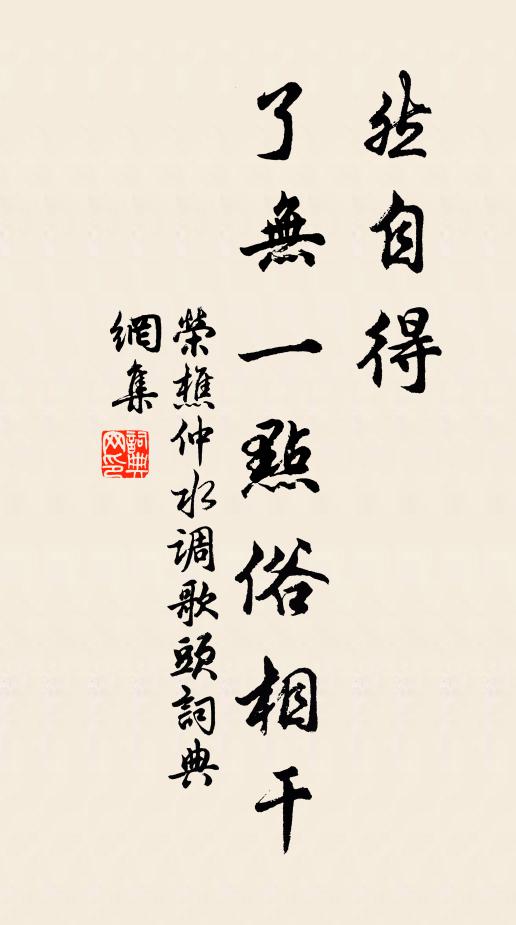 然自得
了無一點俗相干
榮樵仲水调歌頭詞典
網集
詞典
网印